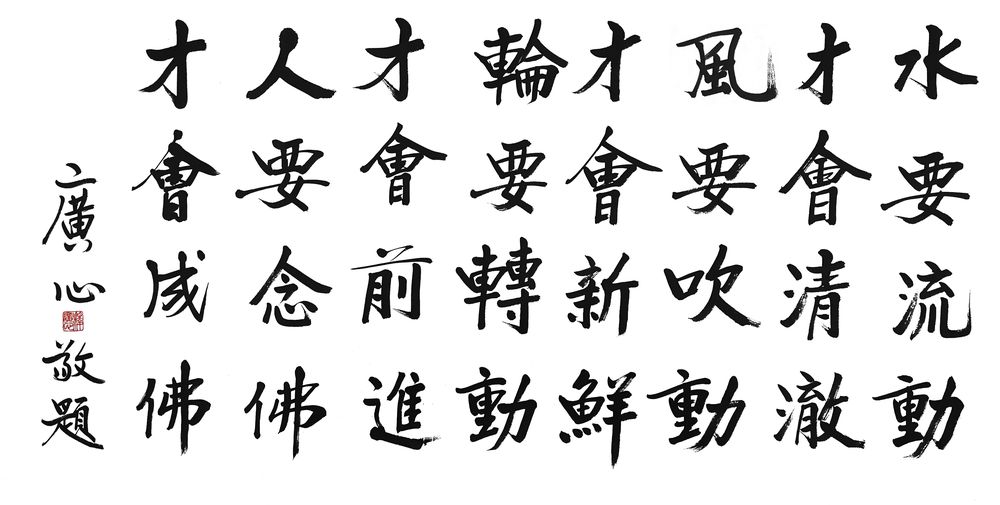 水要流動
才會清澈
風要吹動
才會新鮮
輪要轉動
才會前進
人要念佛
才會成佛
廣心敬題